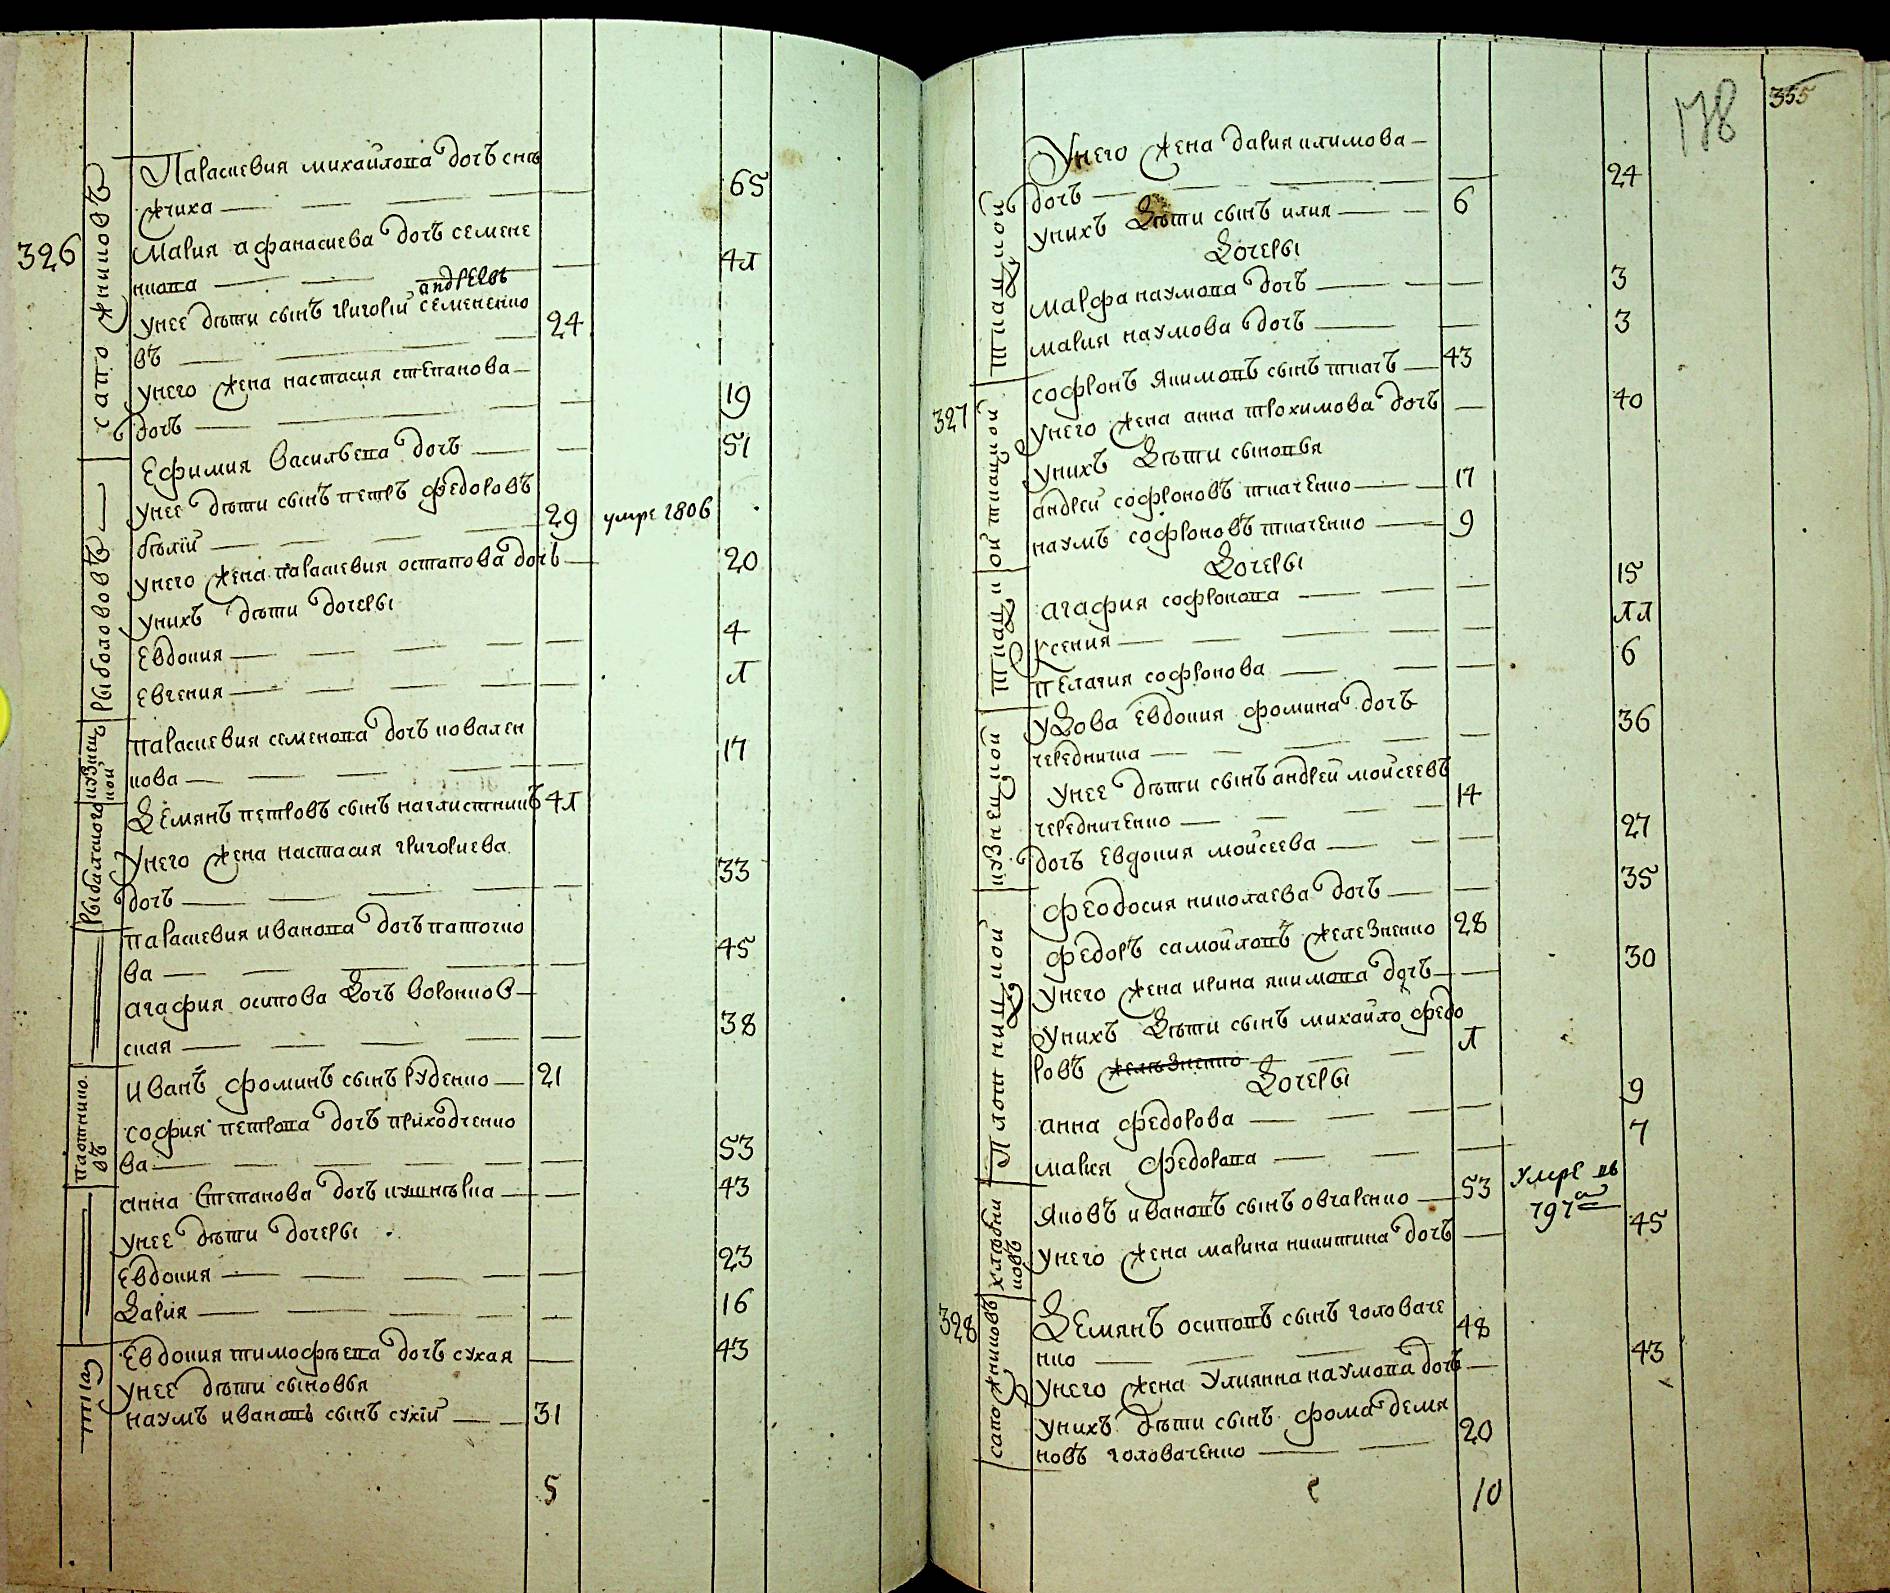 326
сапожниковъ
Параскевия михайлова дочь сне
жчиха 65
Мария афанасиева дочь семене
нкова 41
андреевъ
унее дѣти сынъ григорій семененко
въ 24
унего жена настасия степанова
дочь 19
Ефимия васильева дочь 51
рыболововъ
унее дѣти сынъ петръ федоровъ
бѣлій 29 умре 1806
унего жена параскевия остапова дочь 20
унихъ дѣти дочеры
Евдокия 4
Евгения 1
кузнец
кой
параскевия семенова дочь ковален
кова 17
рыбалского
Демянъ петровъ сынъ наглистникъ 41
унего жена настасия григориева
дочь 33
параскевия иванова дочь папочко
ва 45
агафия осипова дочь воронков
ская 38
Иванъ фоминъ сынъ руденко 21
плотнико
въ
софия петрова дочь приходченко
ва 53
анна степанова дочь кушнѣрка 43
унее дѣти дочеры
Евдокия 23
Дария 16
ткац
Евдокия тимофѣева дочь сухая 43
унее дѣти сыновья
наумъ ивановъ сынъ сухій 31
5
178
355
ткацкой
Унего жена дария климова
дочь 24
унихъ дѣти сынъ илия 6
Дочеры
марфа наумова дочь 3
мария наумова дочь 3
софронъ якимовъ сынъ ткачь 43
327
унего жена анна трохимова дочь 40
унихъ дѣти сыновья
андрей софроновъ ткаченко 17
наумъ софроновъ ткаченко 9
Дочеры
ткацкой
агафия софронова 15
ксения 11
пелагия софронова 6
кузнецкой
удова Евдокия фомина дочь
чередничка 36
унее дѣти сынъ андрей мойсеевъ
чередниченко 14
дочь Евдокия мойсеева 27
феодосия николаева дочь 35
плотницкой
федоръ самойловъ железненко 28
унего жена ирина якимова дочь 30
унихъ дѣти сынъ михайло федо
ровъ желѣзненко 1
Дочеры
анна федорова 9
мария федорова 7
хлѣбни
ковъ
Яковъ ивановъ сынъ овчаренко 53 умре въ
797
унего жена марина никитина дочь 45
328
сапожниковъ
Демянъ осиповъ сынъ головаче
нко 48
унего жена Улиянна наумова дочь 43
унихъ дѣти сынъ фома демя
новъ головаченко 20
10